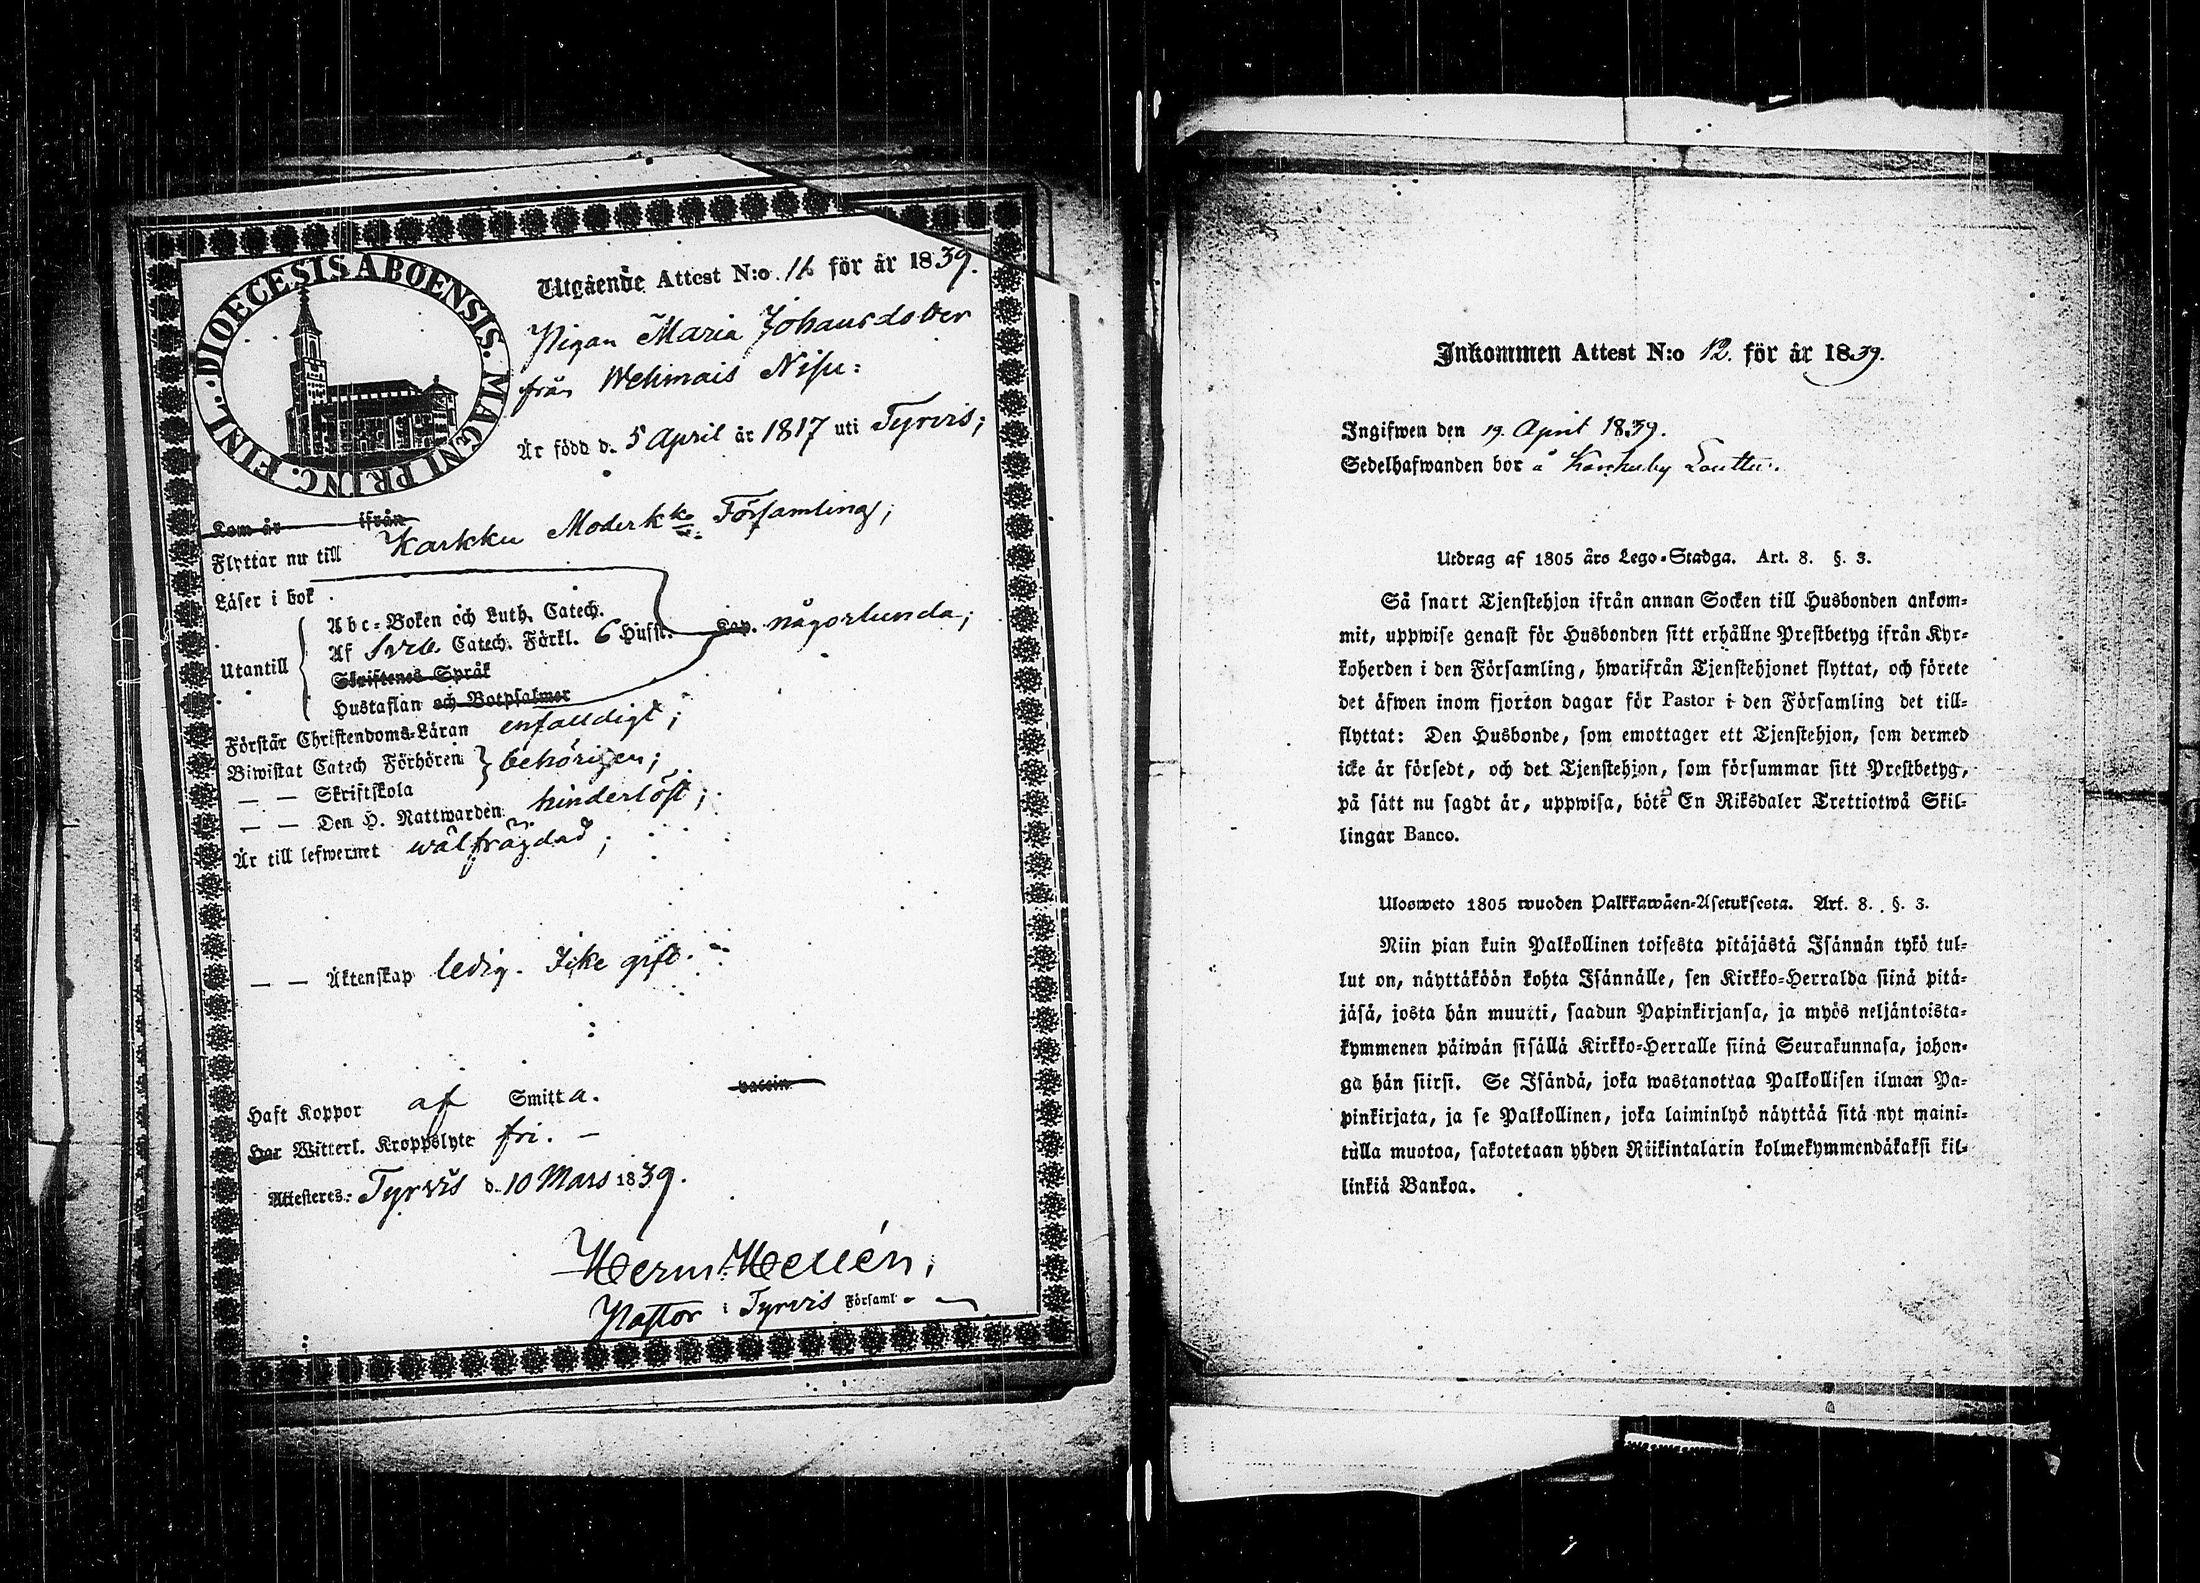 DIOECESIS ABOENSIS. MAGNI PRINC. FINL.
Utgående Attest N:o 16 för år 1839.
Pigan Maria Johansdotter
från Wehmais Nisu:
Är född d. 5 April år 1817 uti Tyrvis;
Kom år ifrån
Flyttar nu till Karkku Moderkko Församling;
Läser i bok
Utantill
Abc-Boken och Luth. Catech.
Af Sveb Catech. Förkl. 6 Hufst. Cap. någorlunda;
Skriftenes Språk
Hustaflan och Botpsalmer
Förstår Christendoms-Läran enfalldigt;
Biwistat Catech Förhören } behörigen;
— — Skriftskola
— — Den H. Nattwarden hinderlöst;
Är till lefwernet wälfrägdad;
— — Äktenskap ledig. Icke gift.
Haft Koppor af Smitta. vaccin
Har Witterl. Kroppslyte fri. —
Attesteres: Tyrvis d. 10 Mars 1839.
Herm. Hellén;
Pastor i Tyrvis Församl.
Inkommen Attest N:o 12. för år 1839.
Ingifwen den 19. April 1839.
Sedelhafwanden bor å Karkuby Louttu.
Utdrag af 1805 års Lego-Stadga. Art. 8. §. 3.
Så snart Tjenstehjon ifrån annan Socken till Husbonden ankom-
mit, uppwise genast för Husbonden sitt erhållne Prestbetyg ifrån Kyr-
koherden i den Församling, hwarifrån Tjenstehjonet flyttat, och förete
det äfwen inom fjorton dagar för Pastor i den Församling det till-
flyttat: Den Husbonde, som emottager ett Tjenstehjon, som dermed
icke är försedt, och det Tjenstehjon, som försummar sitt Prestbetyg,
på sätt nu sagdt är, uppwisa, böte En Riksdaler Trettiotwå Skil-
lingar Banco.
Ulosweto 1805 wuoden Palkkawäen-Asetuksesta. Art. 8. §. 3.
Niin pian kuin Palkollinen toisesta pitäjästä Isännän tykö tul-
lut on, näyttäköön kohta Isännälle, sen Kirkko-Herralda siinä pitä-
jäsä, josta hän muutti, saadun Papinkirjansa, ja myös neljäntoista-
kymmenen päiwän sisällä Kirkko-Herralle siinä Seurakunnasa, johon-
ga hän siirsi. Se Isändä, joka wastanottaa Palkollisen ilman Pa-
pinkirjata, ja se Palkollinen, joka laiminlyö näyttää sitä nyt maini-
tulla muotoa, sakotetaan yhden Riikintalarin kolmekymmendäkaksi kil-
linkiä Bankoa.